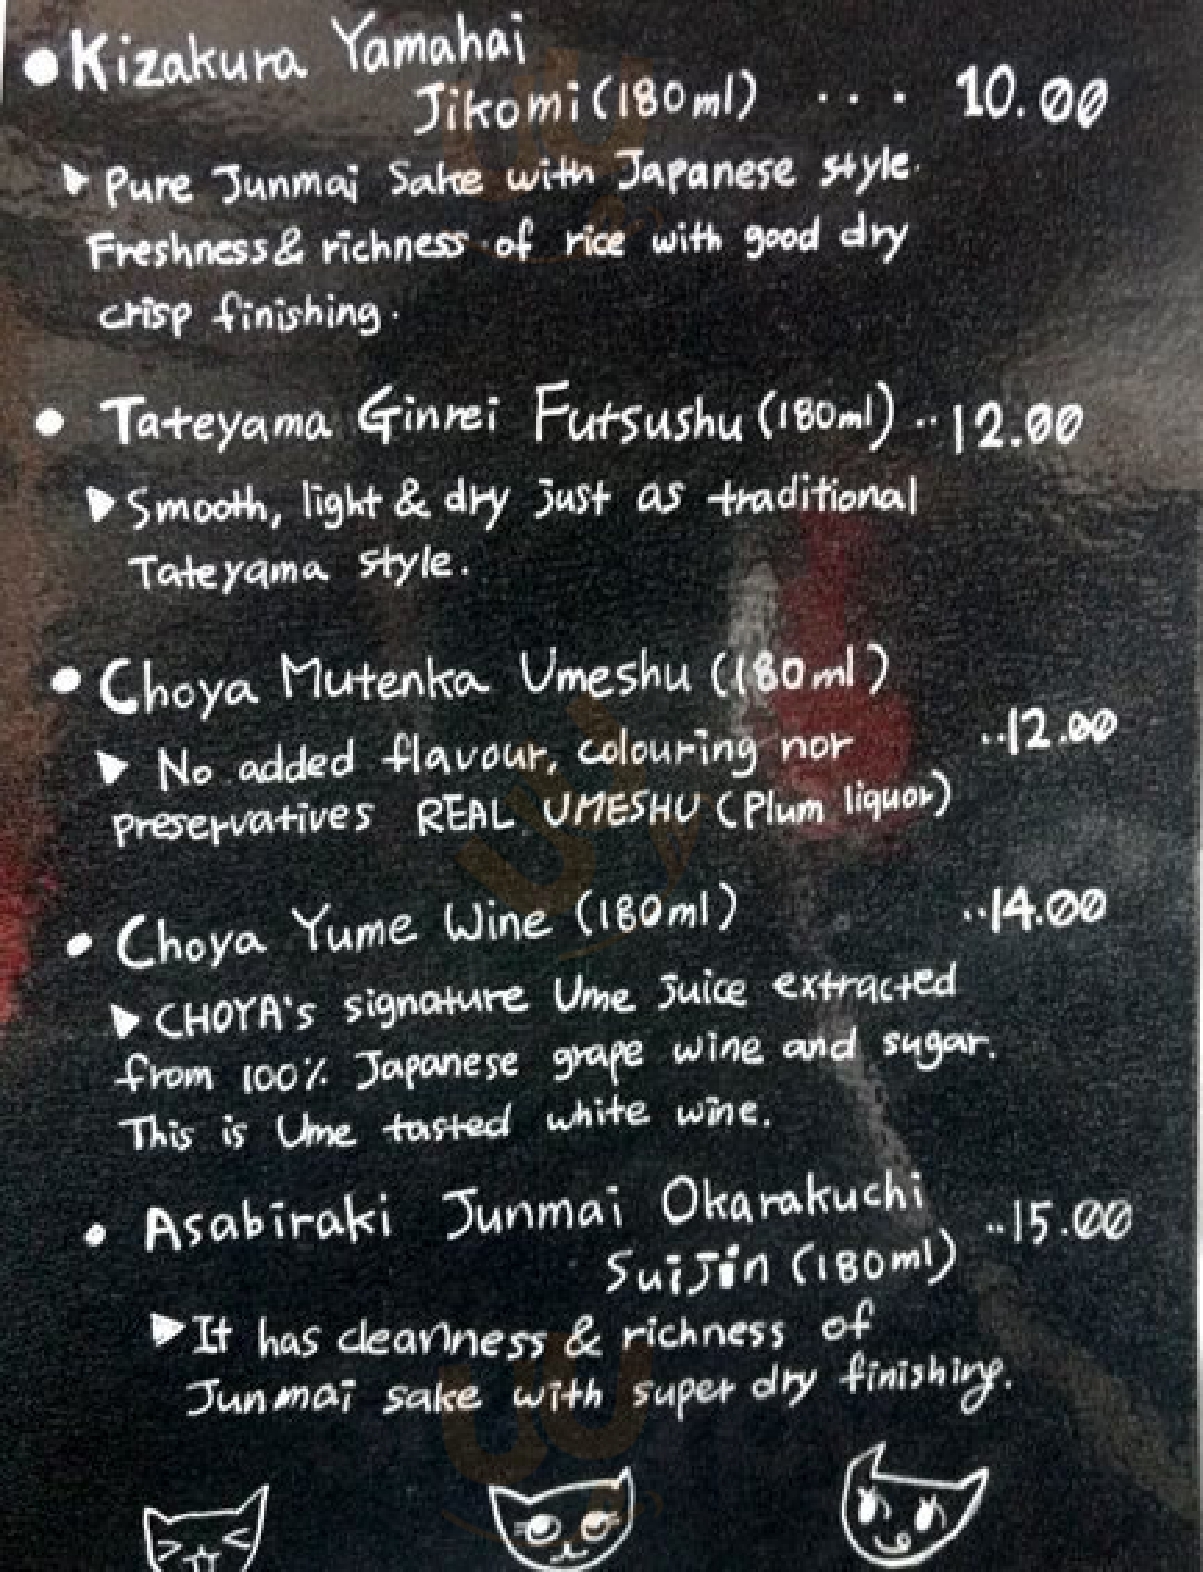 • Kizakura Yamahai
Jikomi (180ml) ... 10.00
▶ Pure Junmai Sake with Japanese style.
Freshness & richness of rice with good dry
crisp finishing.
• Tateyama Ginrei Futsushu (180ml) ..12.00
▶ Smooth, light & dry just as traditional
Tateyama style.
• Choya Mutenka Umeshu (180ml)
..12.00
▶ No added flavour, colouring nor
preservatives REAL UMESHU (Plum liquor)
• Choya Yume Wine (180ml) ..14.00
▶ CHOYA's signature Ume juice extracted
from 100% Japanese grape wine and sugar.
This is Ume tasted white wine.
• Asabiraki Junmai Okarakuchi ..15.00
SuiJin (180ml)
▶ It has cleanness & richness of
Junmai sake with super dry finishing.